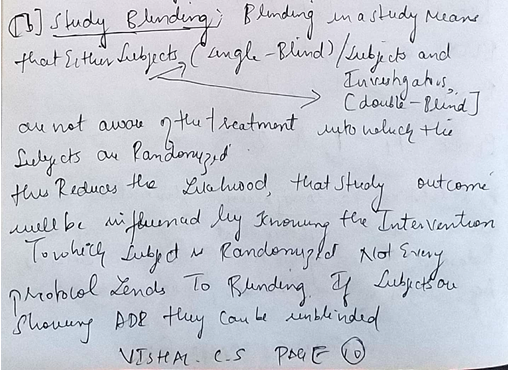 [b] Study Blinding; Blinding in a study Means
that Either Subjects (Single-Blind)/Subjects and
Investigators,
[double-Blind]
are not aware of the treatment into which the
Subjects are Randomized
this Reduces the Likelihood, that Study outcome
will be influenced by Knowing the Intervention
To which Subject is Randomized Not Every
protocol Lends To Blinding. If Subjects are
Showing ADR they can be unblinded
VISHAL. C.S PAGE 10